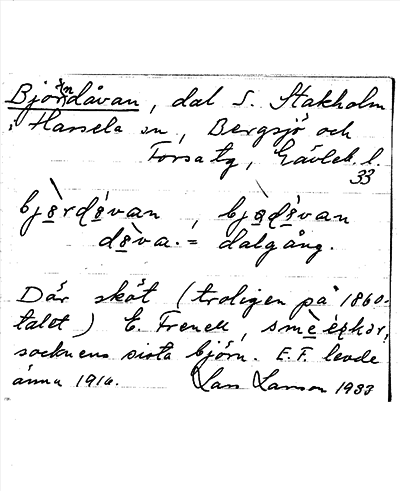 Björndåvan, dal S. Stakholm
i Hassela sn, Bergsjö och
Forsa tg, Gävleb. l.
33
bjo̱rdo̱van, bjo̱do̱van
do̱va. = dalgång.
Där sköt (troligen på 1860-
talet) E. Frenell,
socknens sista björn. E.F. levde
ännu 1916. Lars Larsson 1933